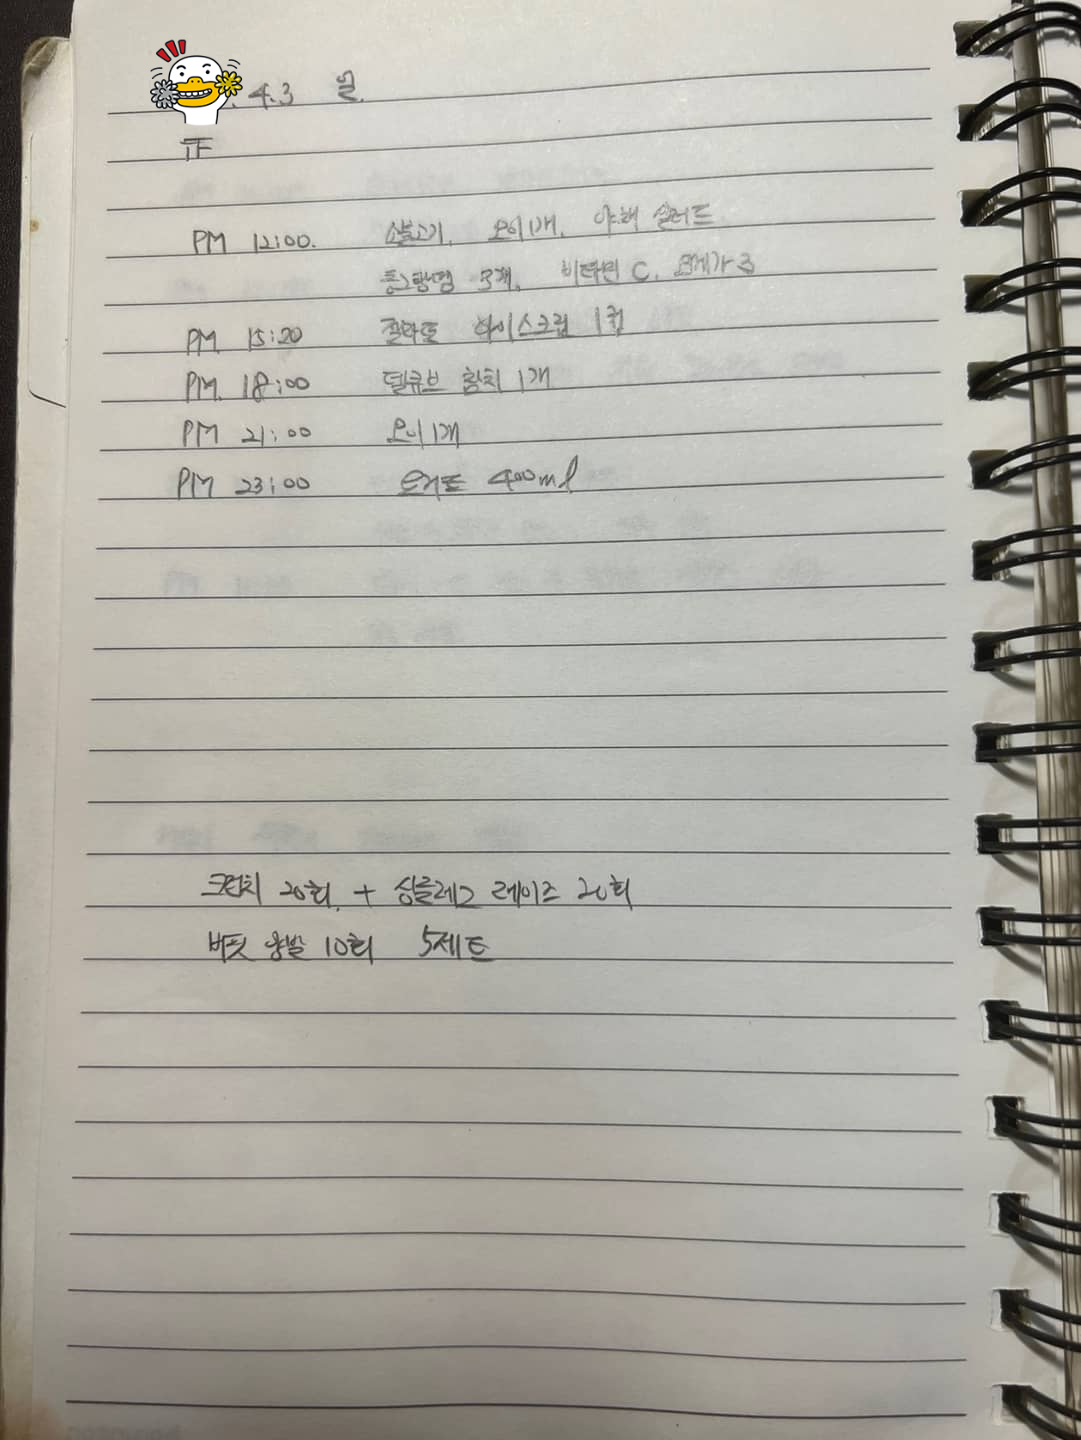 . 4.3 월.
正
PM 12:00. 소불고기, 오이1개, 야채 샐러드
동그랑땡 3개, 비타민 C, 오메가3
PM 15:20 젤라또 아이스크림 1컵
PM 18:00 델큐브 참치 1개
PM 21:00 오이1개
PM 23:00 요거트 400ml
크런치 20회 + 싱글레그 레이즈 20회
버핏 10회 5세트